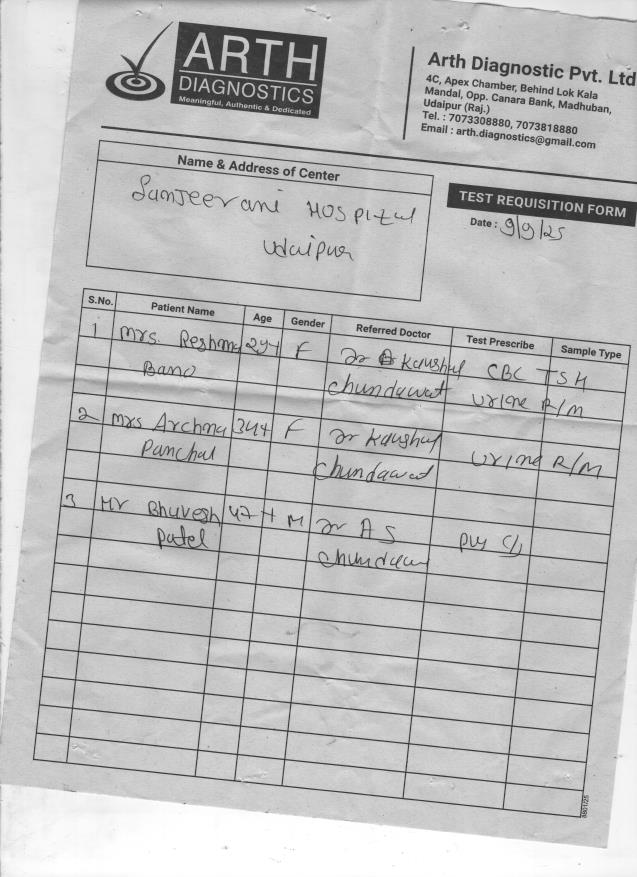 ARTH
DIAGNOSTICS
Meaningful, Authentic & Dedicated
Arth Diagnostic Pvt. Ltd
4C, Apex Chamber, Behind Lok Kala
Mandal, Opp. Canara Bank, Madhuban,
Udaipur (Raj.)
Tel. : 7073308880, 7073818880
Email : arth.diagnostics@gmail.com
Name & Address of Center
Sanjeevani Hospital
Udaipur
TEST REQUISITION FORM
Date : 9/9/25
S.No. Patient Name Age Gender Referred Doctor Test Prescribe Sample Type
1 Mrs. Reshma 29Y F Dr Kaushal CBC TSH
Bano Chundawat Urine R/M
2 Mrs Archna 34Y F Dr Kaushal Urine R/M
Panchal Chundawat
3 Mr Bhuvesh 47Y M Dr A S Pus C/S
Patel Chundawat